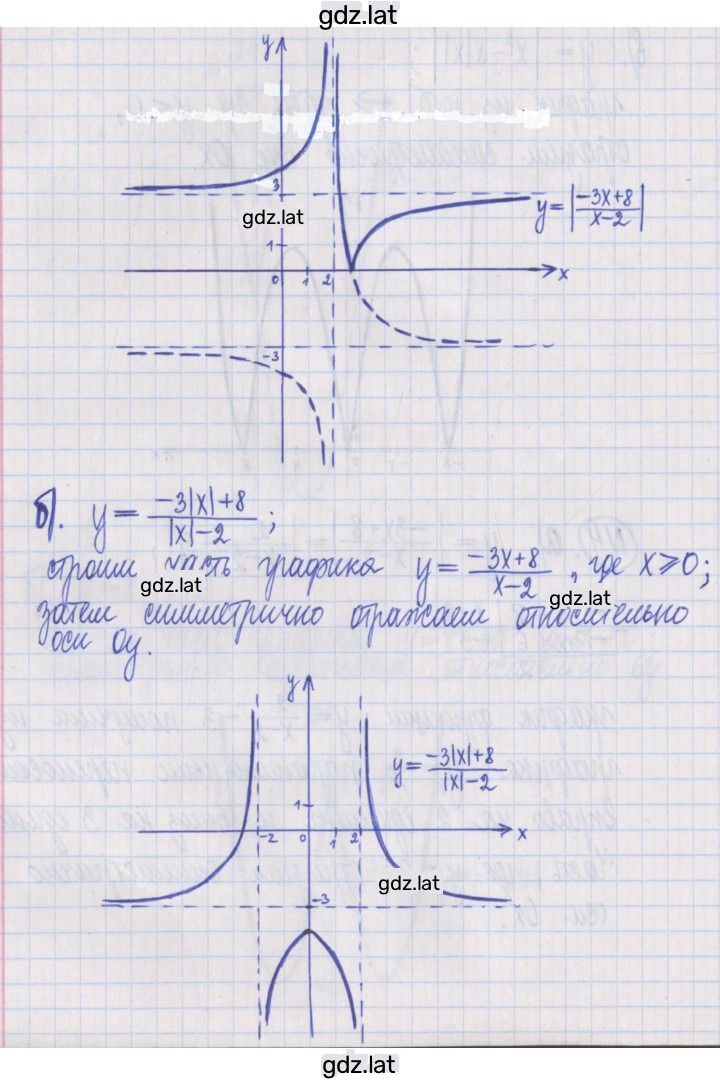 gdz.lat
y
3
gdz.lat
y=|(-3x+8)/(x-2)|
1
0 1 2 x
-3
б). y = (-3|x|+8)/(|x|-2);
строим часть графика y = (-3x+8)/(x-2), где x⩾0;
gdz.lat
gdz.lat
затем симметрично отражаем относительно
оси Oy.
y
y=(-3|x|+8)/(|x|-2)
1
-2 0 1 2 x
gdz.lat
-3
gdz.lat